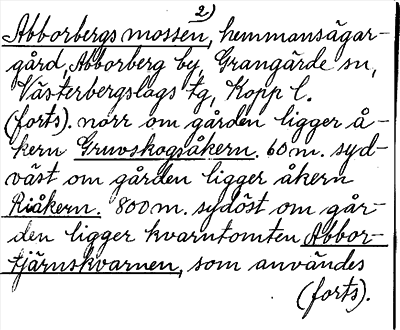 2)
Abborbergsmossen, hemmansägar-
gård, Abborberg by, Grangärde sn,
Västerbergslags tg, Kopp l.
(forts). norr om gården ligger å-
kern Gruvskogsåkern. 60 m. syd-
väst om gården ligger åkern
Riåkern. 800 m. sydöst om går-
den ligger kvarntomten Abbor-
tjärnskvarnen, som användes
(forts).